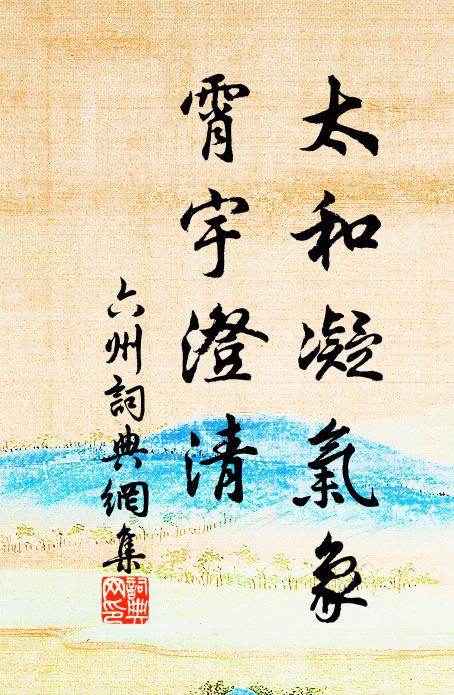 太和凝氣象
霄宇澄清
六州詞典網集
詞典